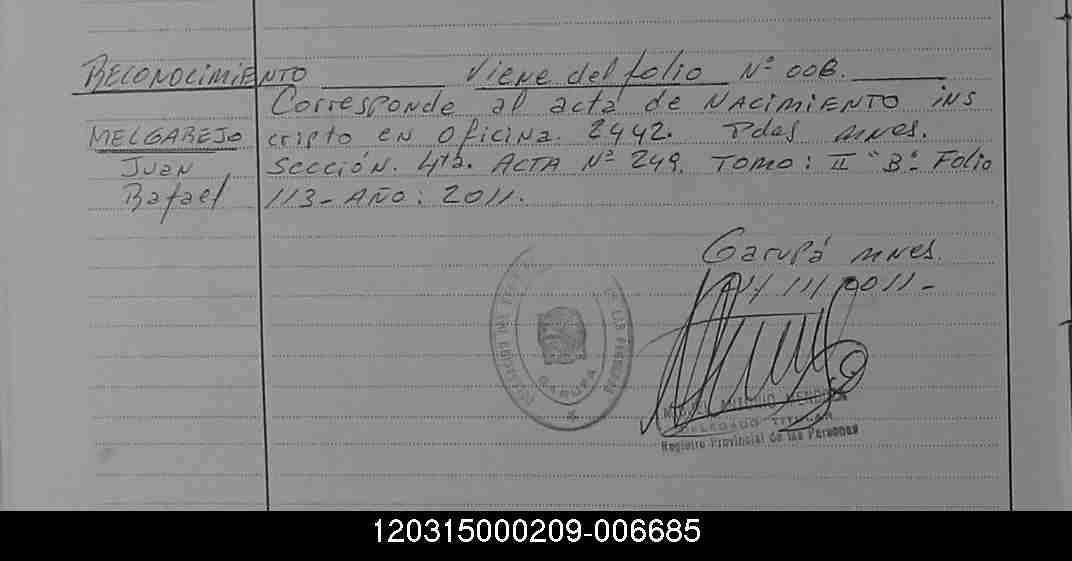 RECONOCIMIENTO Viene del folio Nº 006.
Corresponde al acta de NACIMIENTO ins
MELGAREJO cripto en Oficina. 2442. Pdas mnes.
Juan Sección. 4ta. ACTA Nº 249. TOMO: II "B". Folio
Rafael 113- AÑO: 2011.
Garupá mnes.
GARUPA
ANTONIO
DELEGADO TITULAR
Registro Provincial de las Personas
120315000209-006685